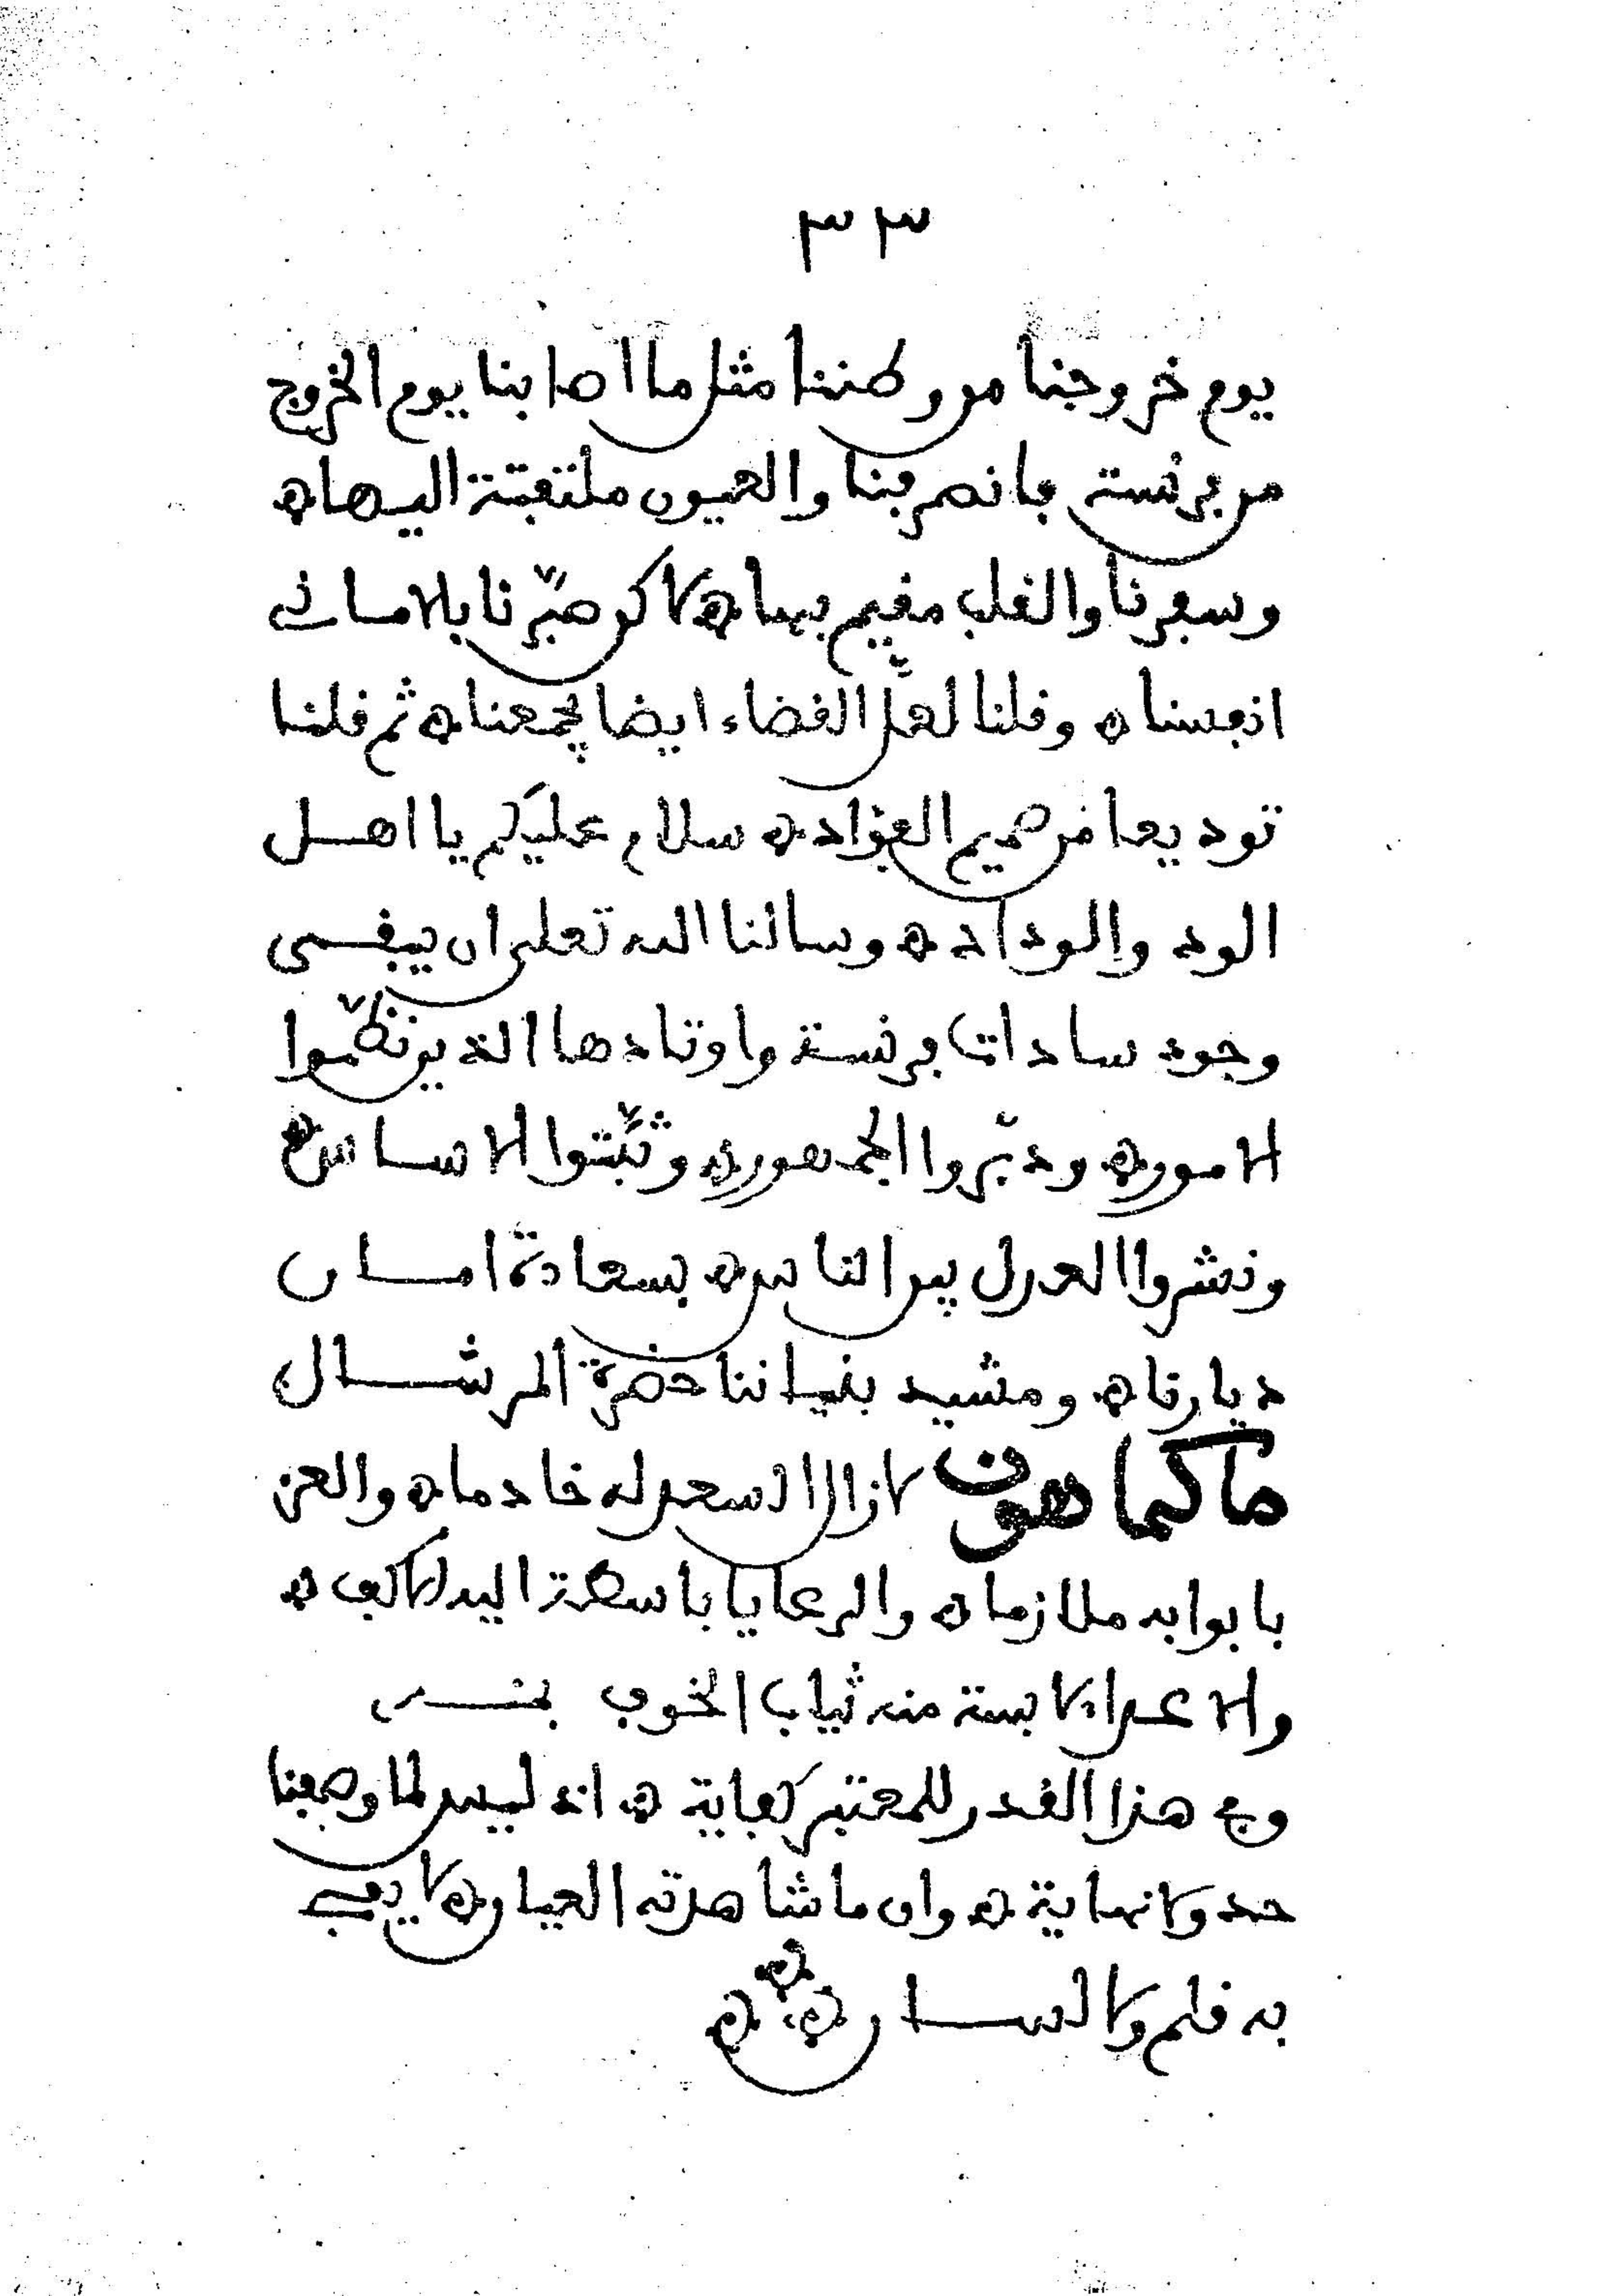 ٣٣
يوم خروجنا من وطننا مثل ما اصابنا يوم الخروج
من فرنسة فانصرفنا والعيون ملتفتة اليها ه
وسفرنا والقلب مقيم بها ه لاكن صبّرنا بالاماني
انفسنا ه وقلنا لعلّ القضاء ايضا يجمعنا ه ثم قلنا
توديعا من صميم الفؤاد ه سلام عليكم يا اهل
الود والوداد ه وسالنا الله تعلى ان يبقى
وجوه سادات فرنسة واوتادها الذين نظّموا
الامور ه ودبّروا الجمهور ه وثبّتوا الاساس ه
ونشروا العدل بين الناس ه بسعادة امان
ديارنا ه ومشيد بنياننا حضرة المرشال
ماكماهون لازال السعد له خادما ه والعز
بابوابه ملازما ه والرعايا باسطة اليه الاكف ه
والاعداء لابسة منه ثياب الخوف
وفي هذا القدر للمعتبر كفاية ه اذ ليس لما وصفنا
حد ولا نهاية ه وان ما شاهدته العيان ه لا يفي
به قلم ولا لسان ه ه ه